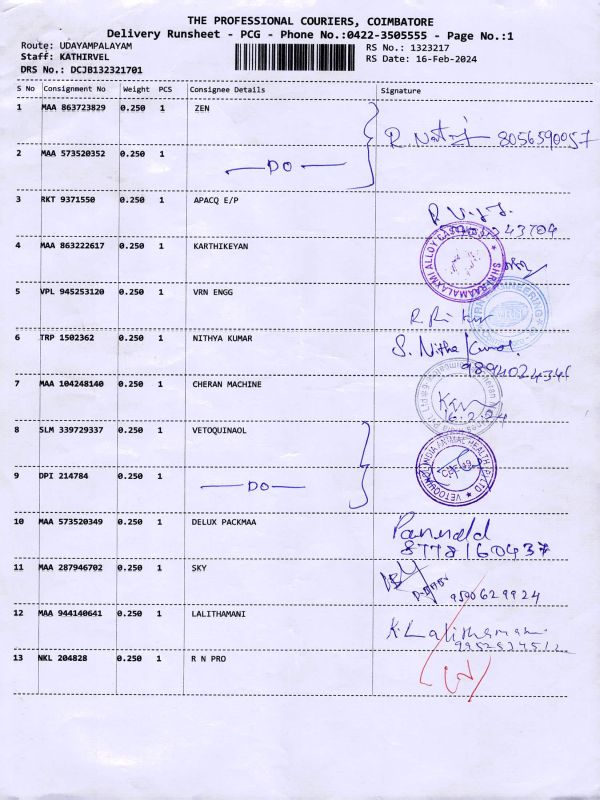 THE PROFESSIONAL COURIERS, COIMBATORE
Delivery Runsheet - PCG - Phone No.:0422-3505555 - Page No.:1
Route: UDAYAMPALAYAM
RS No.: 1323217
Staff: KATHIRVEL
RS Date: 16-Feb-2024
DRS No.: DCJB132321701
S No Consignment No Weight PCS Consignee Details Signature
1 MAA 863723829 0.250 1 ZEN
8056590057
2 MAA 573520352 0.250 1 DO
3 RKT 9371550 0.250 1 APACQ E/P
4 MAA 863222617 0.250 1 KARTHIKEYAN
5 VPL 945253120 0.250 1 VRN ENGG
6 TRP 1502362 0.250 1 NITHYA KUMAR
S. Nitha Kumar
7 MAA 104248140 0.250 1 CHERAN MACHINE
16.2.24
8 SLM 339729337 0.250 1 VETOQUINAOL
VETOQUINOL INDIA ANIMAL HEALTH (P) LTD
9 DPI 214784 0.250 1 DO
10 MAA 573520349 0.250 1 DELUX PACKMAA
8778160437
11 MAA 287946702 0.250 1 SKY
9500629924
12 MAA 944140641 0.250 1 LALITHAMANI
K. Lalithamani
13 NKL 204828 0.250 1 R N PRO